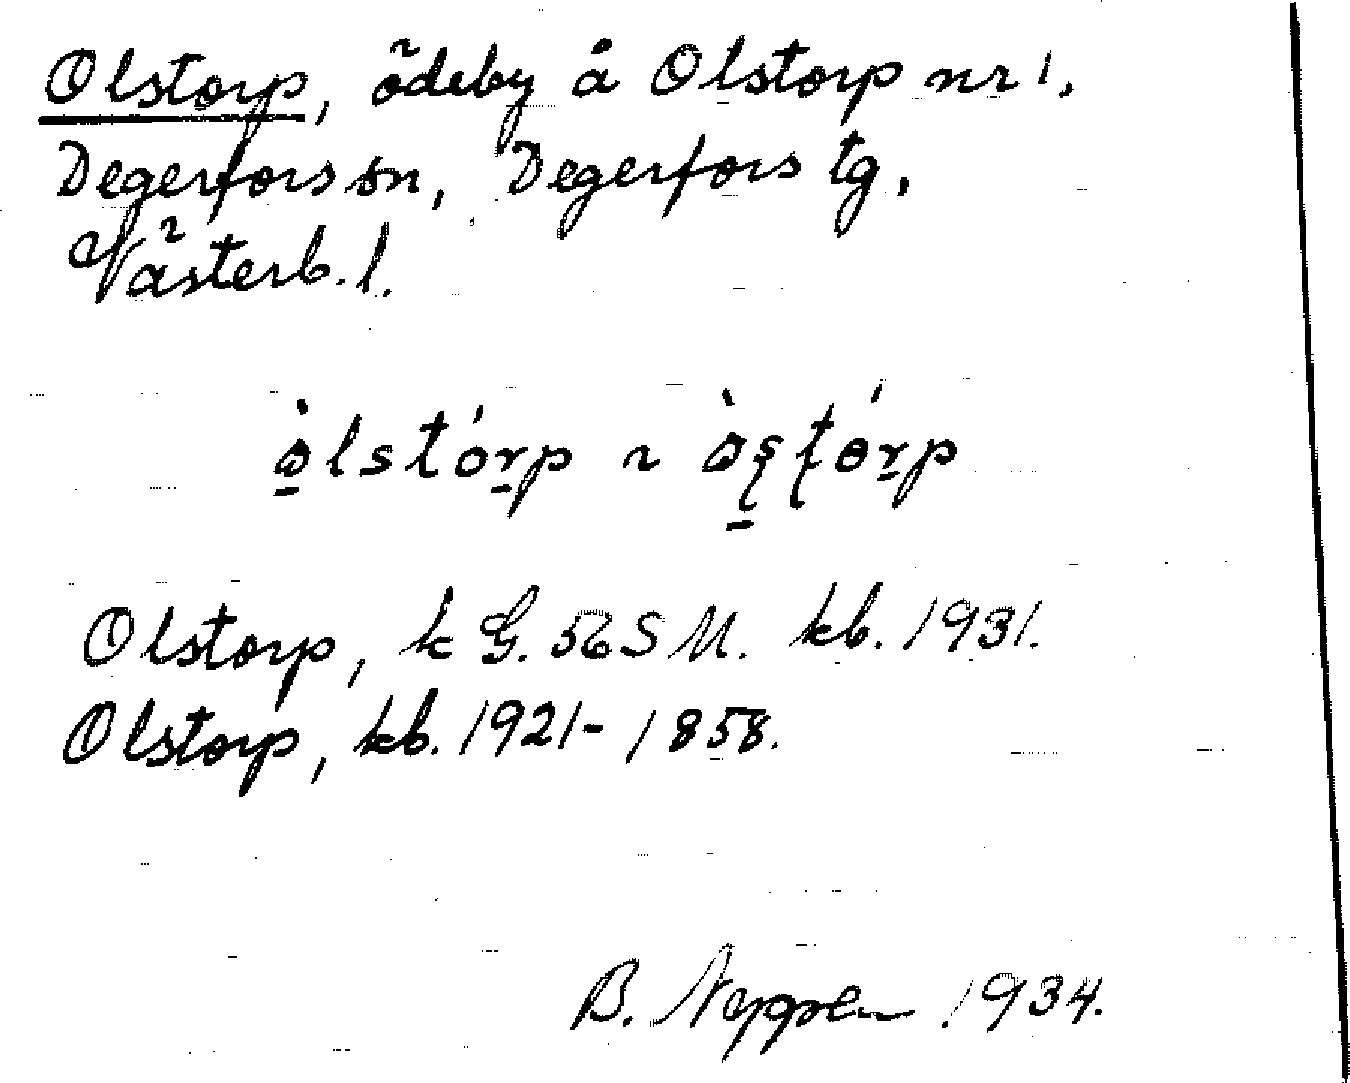 Olstorp, ödeby å Olstorp nr 1,
Degerfors sn, Degerfors tg,
Västerb. l.
òlstórp ~ òʂʈórp
Olstorp, k G. 56 S M. kb. 1931.
Olstorp, kb. 1921-1858.
B. 1934.